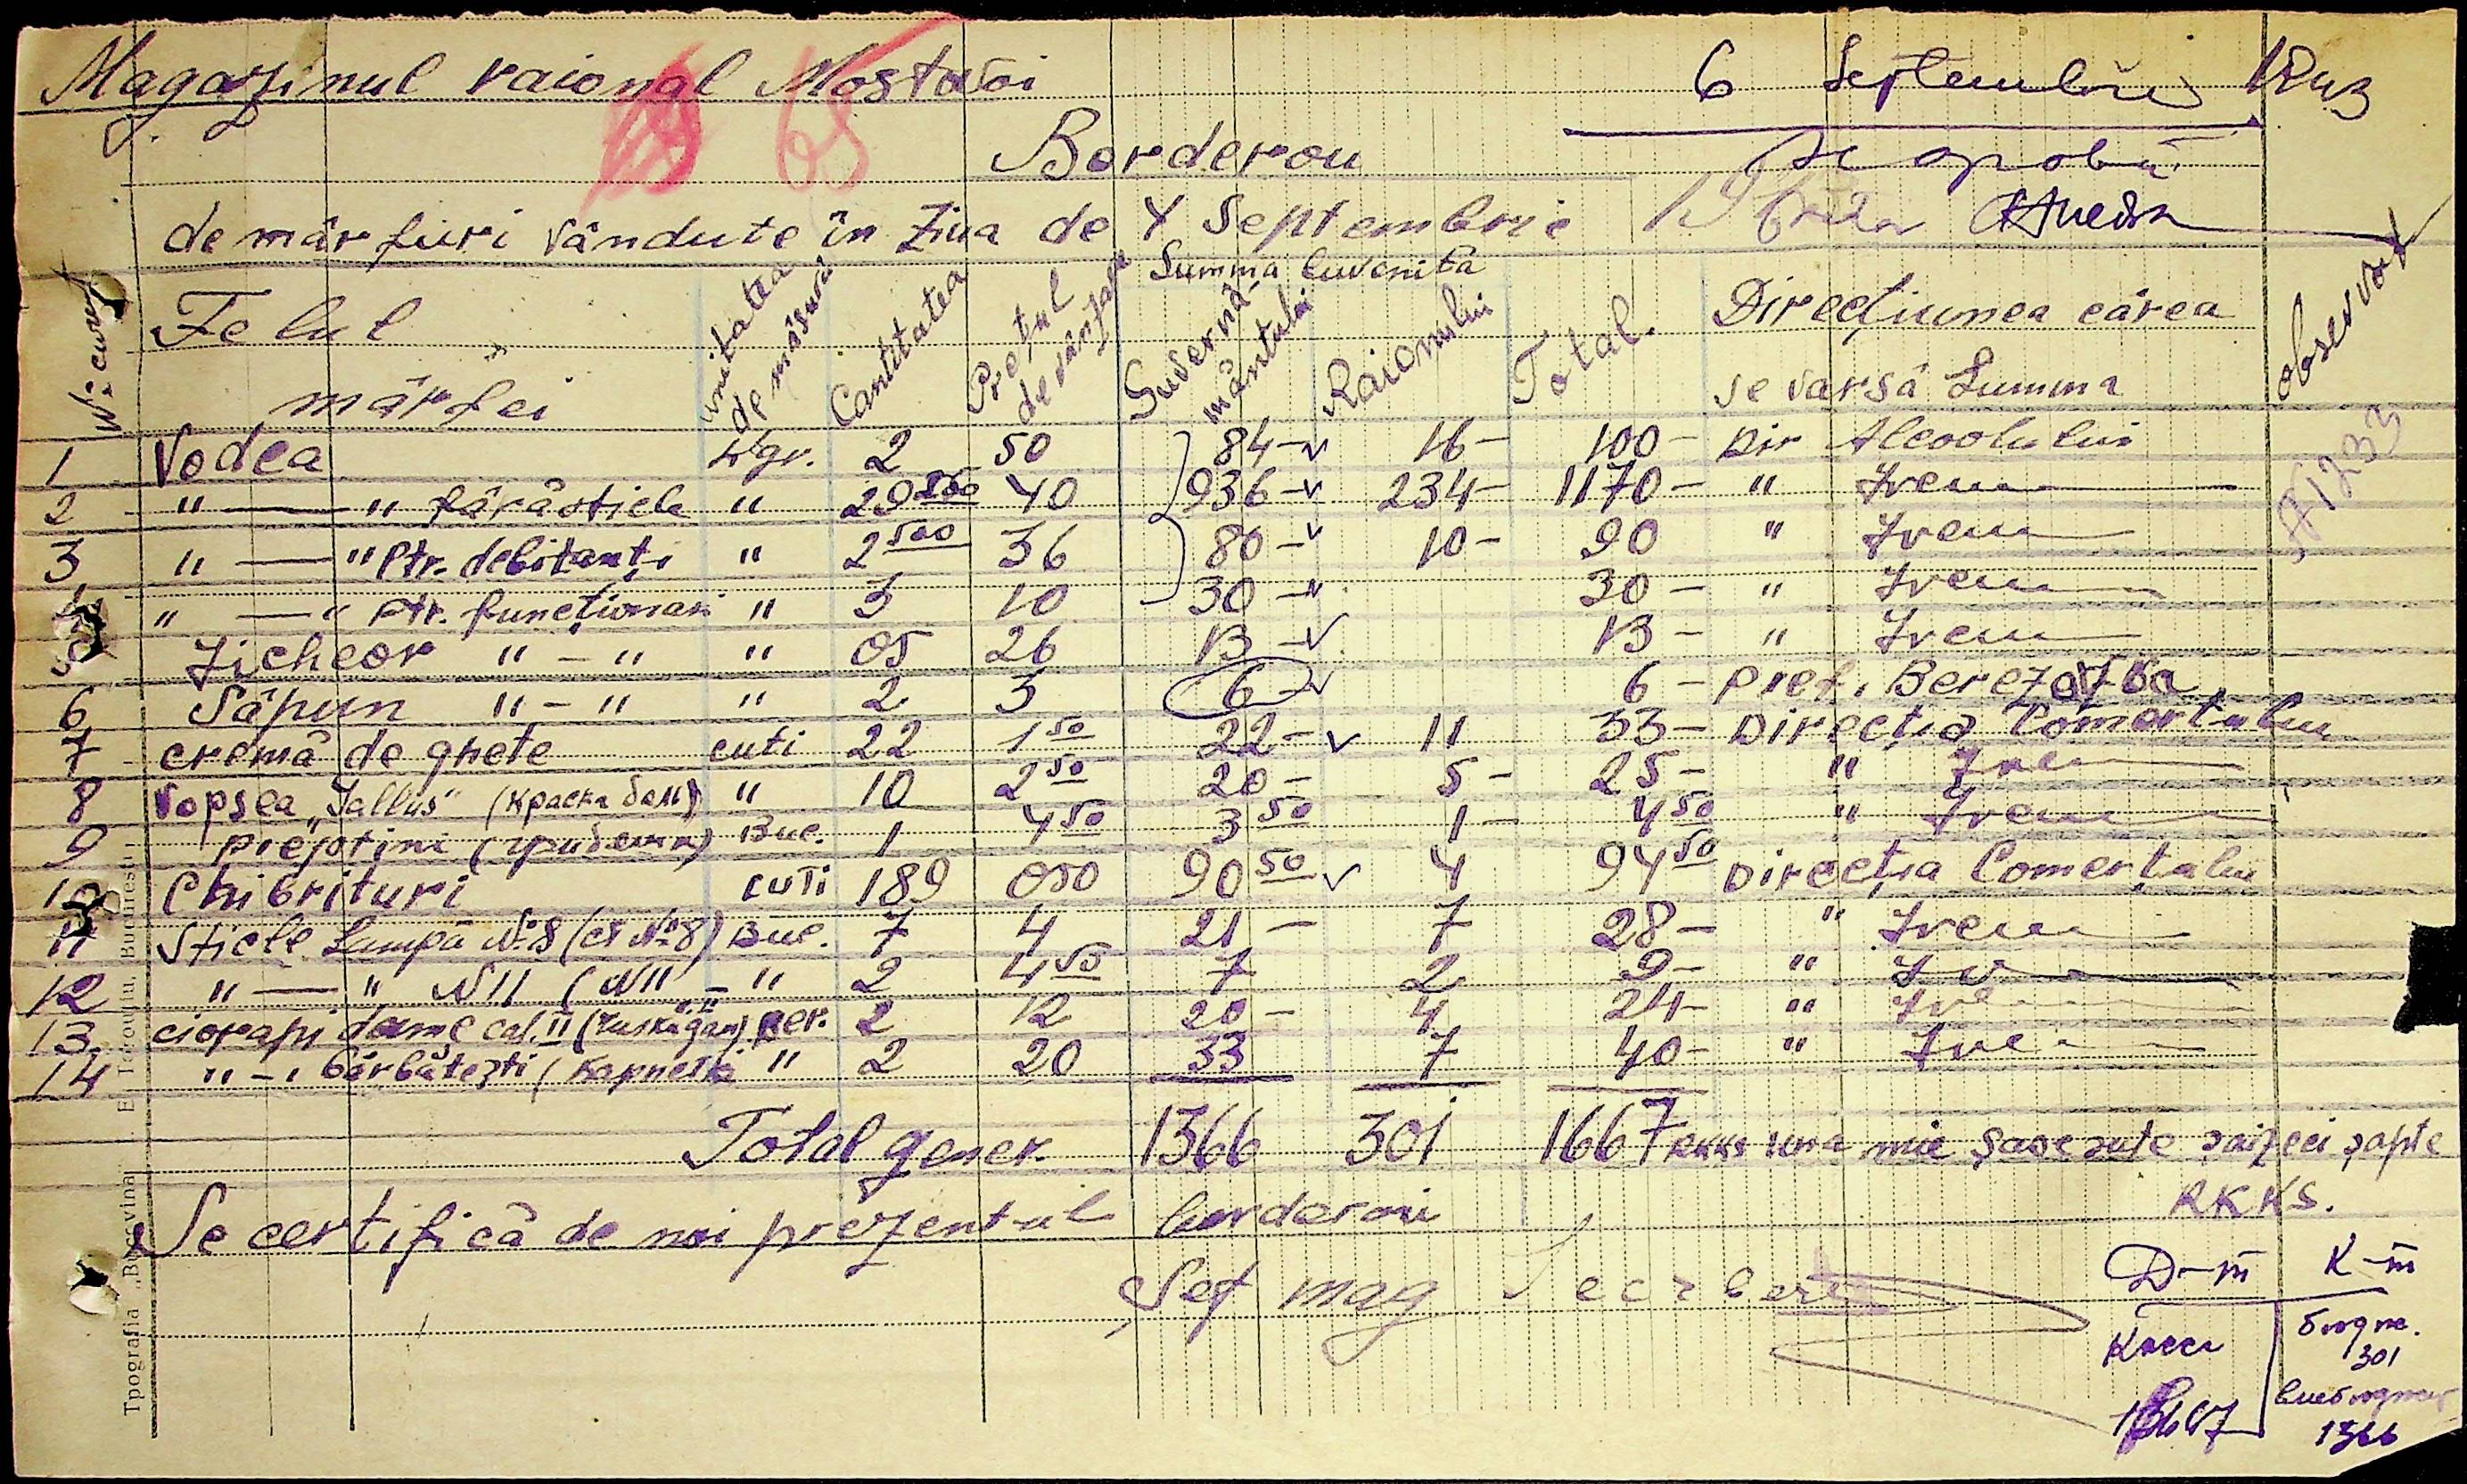 Magazinul raional Mostovoi
65
6 Septembrie 1943
Borderou
Se aprobă
de mărfuri vândute în ziua de 4 Septembrie 19
Nr curent
Felul mărfei
unitatea de măsură
Cantitatea
Prețul de vânzare
Summa cuvenită
Guvernămăntului
Raionului
Total.
Direcțiunea cărea se varsă Summa
observații
1 Vodca kgr. 2 50 84- 16- 100- Dir Alcoolului
2 " — " fărăsticlă " 29 250 40 936- 234- 1170- " Idem
3 " — " ptr. debitanți " 2 500 36 80- 10- 90 " Idem
4 " — " ptr. funcționari " 3 10 30- 30- " Idem
5 Licheor " - " " 05 26 13- 13- " Idem
6 Săpun " - " " 2 3 6- 6- Pref. Berezovka
7 cremă de ghete cuti 22 1 50 22- 11 33- Direcția Comerțului
8 Vopsea „Jallus" (краска " 10 2 50 20- 5- 25- " Idem
9 pieptini (гребенки) Buc. 1 4 50 3 50 1- 4 50 " Idem
10 Chibrituri cuti 189 050 90 50 4 94 50 Direcția Comerțului
11 Sticle Lampă №8 (ст №8) Buc. 7 4 21- 7 28- " Idem
12 " — " N11 (N11 - " 2 4 50 7 2 9- " Idem
13 ciorapi dame cal. II per. 2 12 20- 4 24- " Idem
14 " - " bărbătești ( " 2 20 33 7 40- " Idem
A1233
Total gener. 1366 301 1667 RKKS una mie șase sute șaizeci șapte
RKKS.
Se certifică de noi prezentul borderou
Șef mag
Д-т К-т
Касса
бюдж.
301
внебюджет
1667
1366
Tipografia „Bucovina" I. E. Torouțiu, București